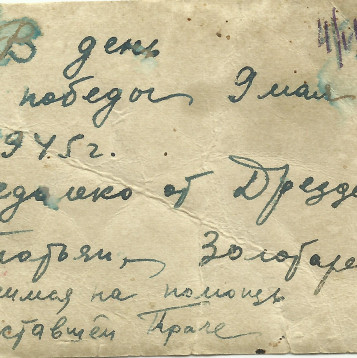 В день
победы 9 мая
945г.
едалеко от Дрезд
Золотаре
шимся на помощь
сставшей Праге